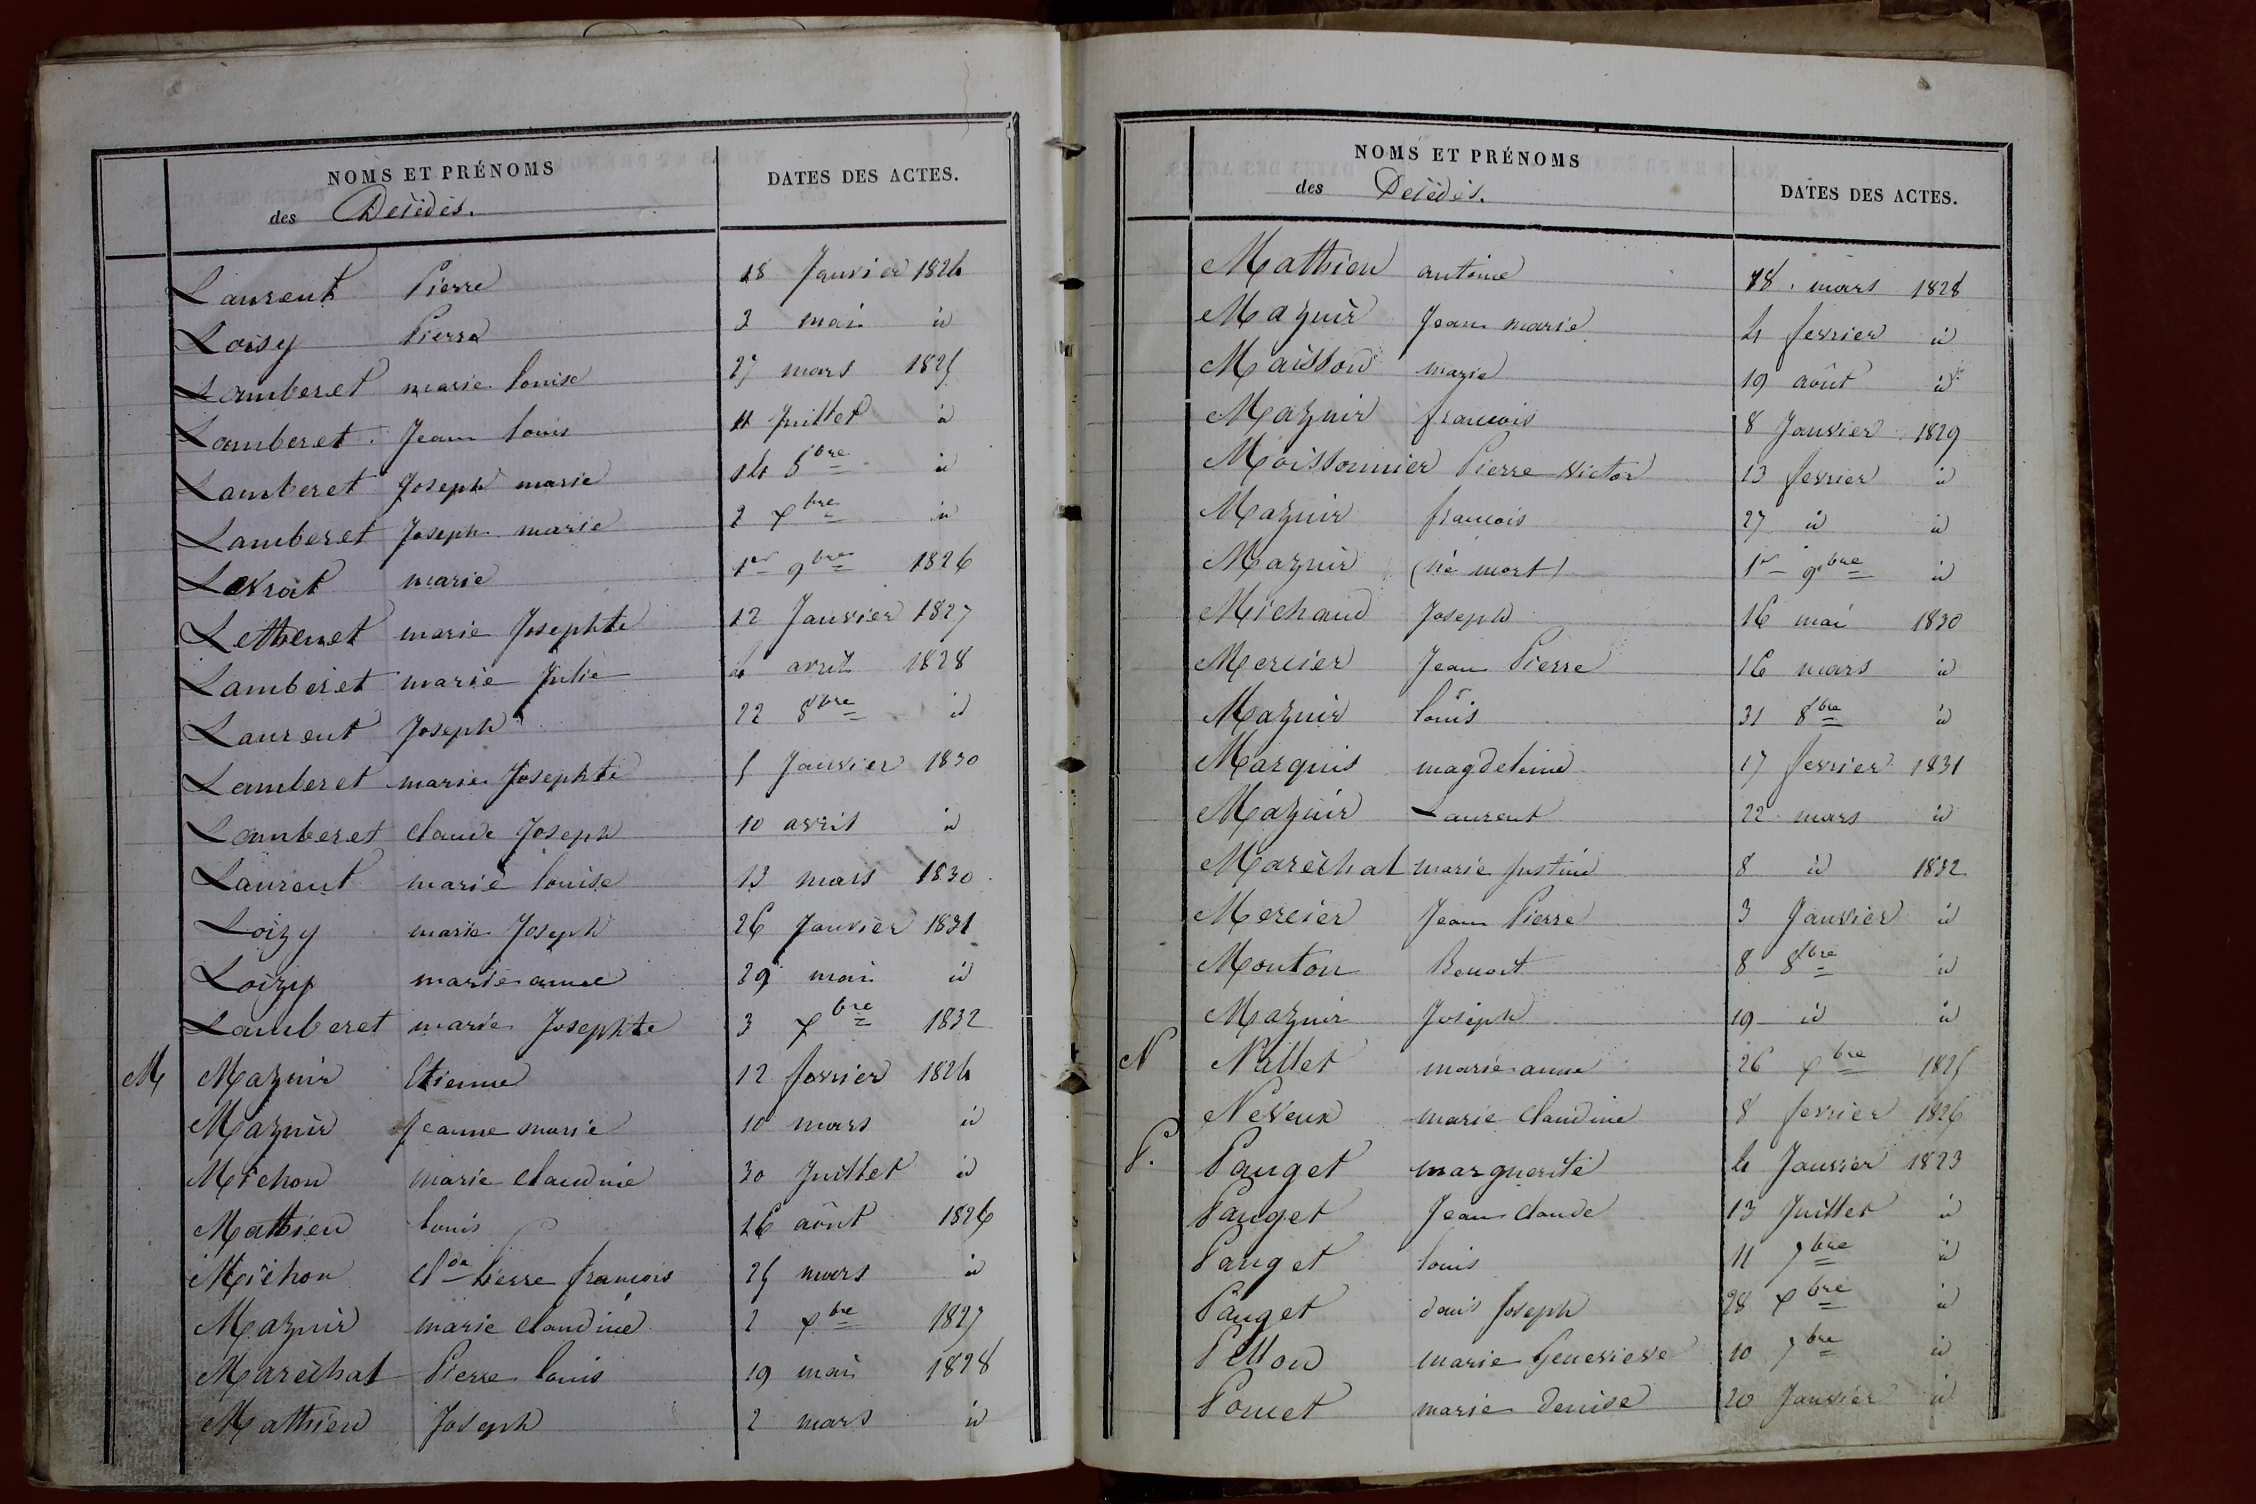 NOMS ET PRÉNOMS
des Décédés.
DATES DES ACTES.
Laurent Pierre 18 Janvier 1824
Loisy Pierre 3 mai id
Lamberet marie louise 27 mars 1825
Lamberet Jean louis 11 Juillet id
Lamberet Joseph marie 14 8bre id
Lamberet Joseph marie 2 xbre id
Levrat marie 1er 9bre 1826
Lethenet marie Josephte 12 Janvier 1827
Lamberet marie Julie 4 avril 1828
Laurent Joseph 22 8bre id
Lamberet marie Josephte 5 Janvier 1830
Lamberet claude Joseph 10 avril id
Laurent marie louise 13 mars 1830
Loizy marie Joseph 26 Janvier 1831
Loizy marie anne 29 mai id
Lamberet marie Josephte 3 xbre 1832
M Mazuir Etienne 12 fevrier 1824
Mazuir Jeanne marie 10 mars id
Michon marie claudine 30 Juillet id
Mathieu louis 16 août 1826
Michon Clde Pierre francois 25 mars id
Mazuir marie claudine 2 xbre 1827
Maréchal Pierre louis 19 mai 1828
Mathieu Joseph 2 mars id
NOMS ET PRÉNOMS
des Décédés.
DATES DES ACTES.
Mathieu antoine 18 mars 1828
Mazuir Jean marie 4 fevrier id
Maisson marie 19 août id
Mazuir francois 8 Janvier 1829
Moissonnier Pierre victor 13 fevrier id
Mazuir francois 27 id id
Mazuir (né mort) 1er 9bre id
Michaud Joseph 16 mai 1830
Mercier Jean Pierre 16 mars id
Mazuir louis 31 8bre id
Marquis magdeleine 17 fevrier 1831
Mazuir Laurent 22 mars id
Maréchal marie Justine 8 id 1832
Mercier Jean Pierre 3 Janvier id
Mouton Benoit 8 8bre id
Mazuir Joseph 19 id id
N Nallet marie anne 26 xbre 1825
Neveux marie Claudine 8 fevrier 1826
P. Pauget marguerite 4 Janvier 1823
Pauget Jean Claude 13 Juillet id
Pauget louis 11 7bre id
Pauget Joseph 28 xbre id
Pellon marie Genevieve 10 7bre id
Poncet marie Denise 20 Janvier id